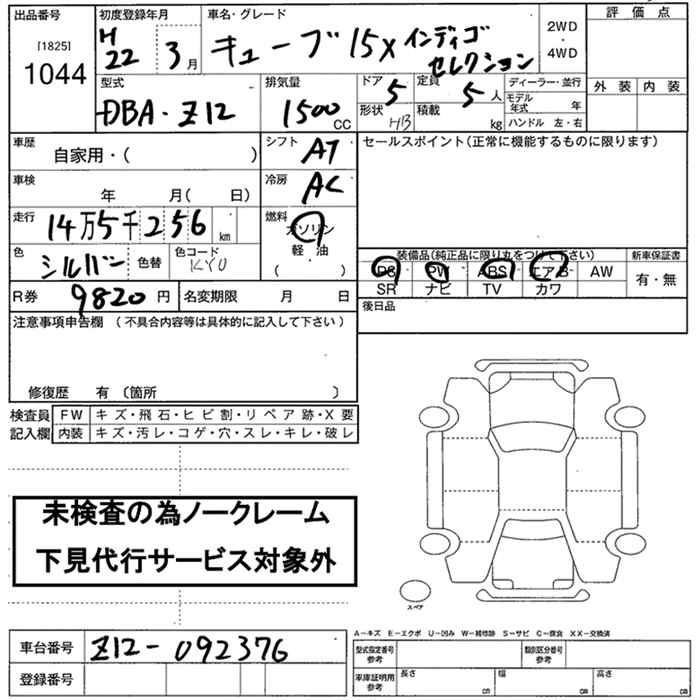 出品番号 初度登録年月 車名・グレード 評価点
[1825] H 22 3月 キューブ 15X インディゴセレクション 2WD・4WD
1044
型式 排気量 ドア 定員 ディーラー・並行 外装 内装
DBA・Z12 1500CC 5 5人 モデル年式 年
形状 HB 積載 kg ハンドル 左・右
車歴 自家用・( ) シフト AT セールスポイント(正常に機能するものに限ります)
車検 年 月( 日) 冷房 AC
走行 14万5千256km 燃料 ガソリン
軽・油
( )
色 シルバー 色替 色コード KY0
装備品(純正品に限り丸をつけて下さい) 新車保証書
PS PW ABS エアB AW 有・無
SR ナビ TV カワ
R券 9820円 名変期限 月 日 後日品
注意事項申告欄 (不具合内容等は具体的に記入して下さい)
修復歴 有 〔箇所 〕
検査員 FW キズ・飛石・ヒビ割・リペア跡・X要
記入欄 内装 キズ・汚レ・コゲ・穴・スレ・キレ・破レ
未検査の為ノークレーム
下見代行サービス対象外
スペア
A−キズ E−エクボ U−凹み W−補修跡 S−サビ C−腐食 XX−交換済
車台番号 Z12-092376 型式指定番号 参考 類別区分番号 参考
登録番号 車庫証明用 参考 長さ cm 幅 cm 高さ cm